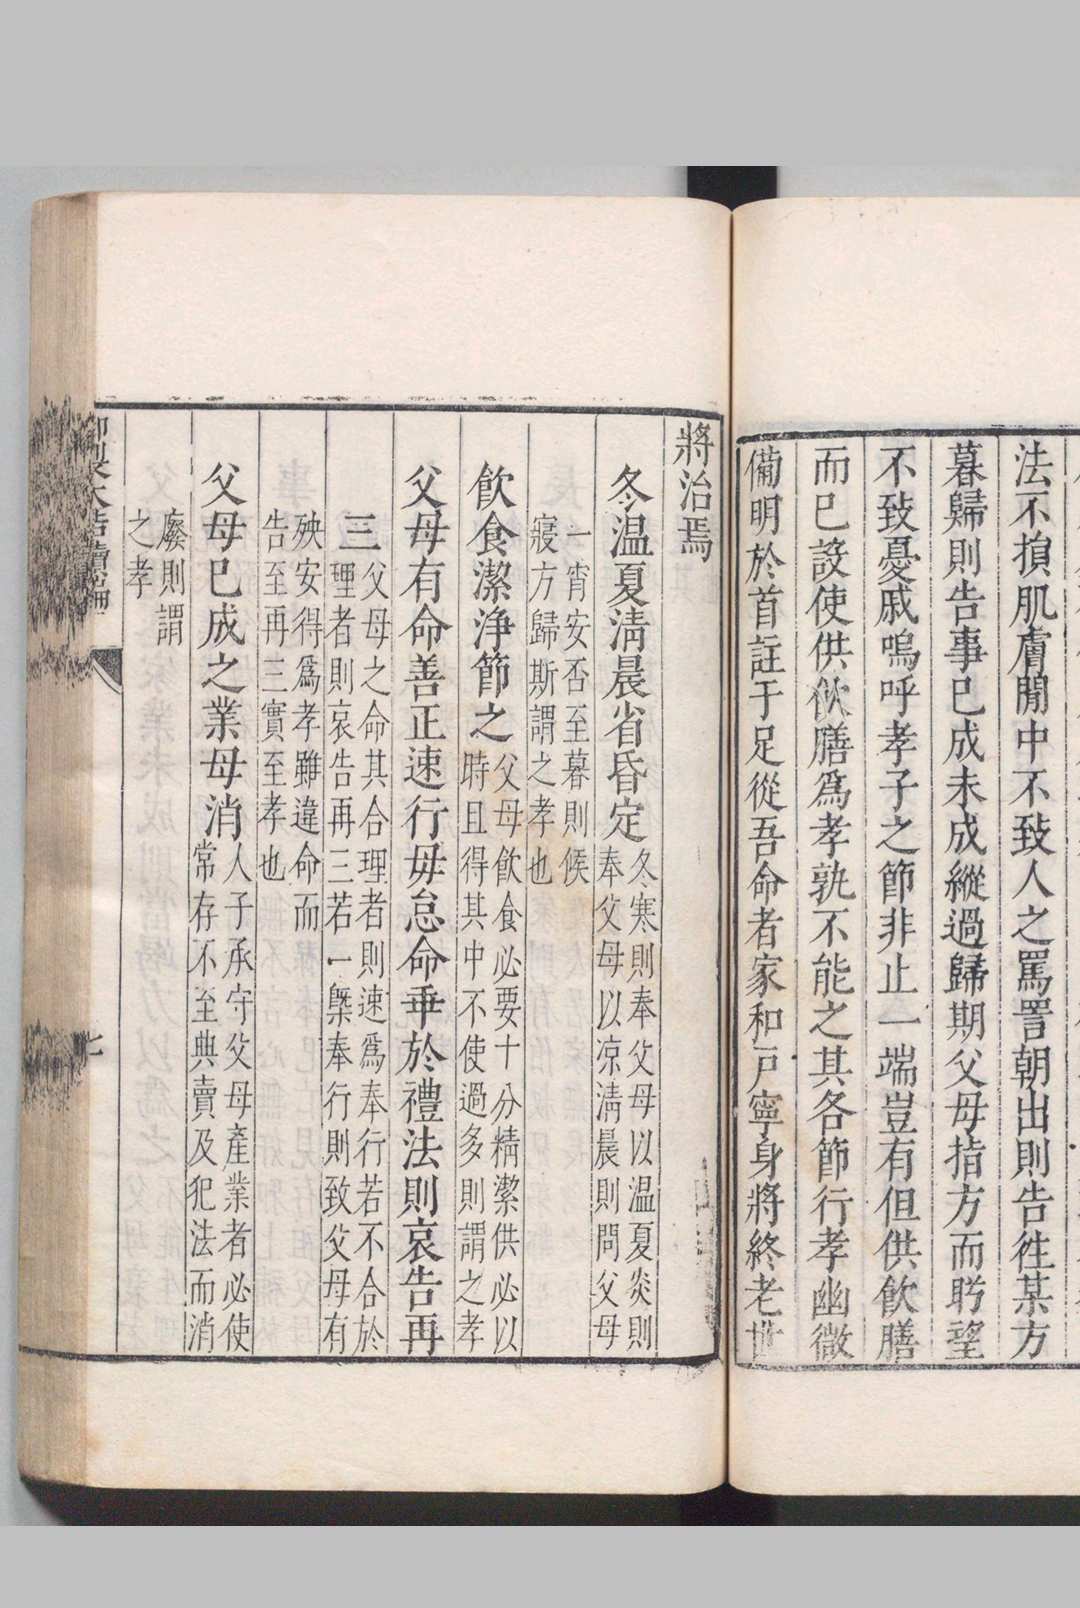 法不損肌膚閒中不致人之罵詈朝出則告徃某方
暮歸則告事已成未成縱過歸期父母指方而眝望
不致憂戚嗚呼孝子之節非止一端豈有但供飲膳
而已設使供飲膳爲孝孰不能之其各節行孝幽微
備明於首註于足從吾命者家和戶寧身將終老世
將治焉
冬温夏淸晨省昏定
冬寒則奉父母以温夏炎則
奉父母以凉淸晨則問父母
一宵安否至暮則候
寢方歸斯謂之孝也
飲食潔淨節之
父母飲食必要十分精潔供必以
時且得其中不使過多則謂之孝
父母有命善正速行毋怠命乖於禮法則哀告再
三
父母之命其合理者則速爲奉行若不合於
理者則哀告再三若一槩奉行則致父母有
殃安得爲孝雖違命而
告至再三實至孝也
父母已成之業毋消
人子承守父母產業者必使
常存不至典賣及犯法而消
廢則謂
之孝
御製大誥續編
七